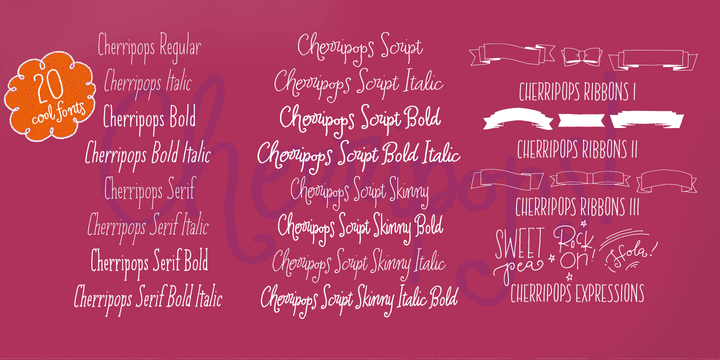 20
cool fonts
Cherripops Regular
Cherripops Italic
Cherripops Bold
Cherripops Bold Italic
Cherripops Serif
Cherripops Serif Italic
Cherripops Serif Bold
Cherripops Serif Bold Italic
Cherripops Script
Cherripops Script Italic
Cherripops Script Bold
Cherripops Script Bold Italic
Cherripops Script Skinny
Cherripops Script Skinny Bold
Cherripops Script Skinny Italic
Cherripops Script Skinny Italic Bold
CHERRIPOPS RIBBONS I
CHERRIPOPS RIBBONS II
CHERRIPOPS RIBBONS III
SWEET
pea
Rock
on!
Hola!
CHERRIPOPS EXPRESSIONS
Cherripops!